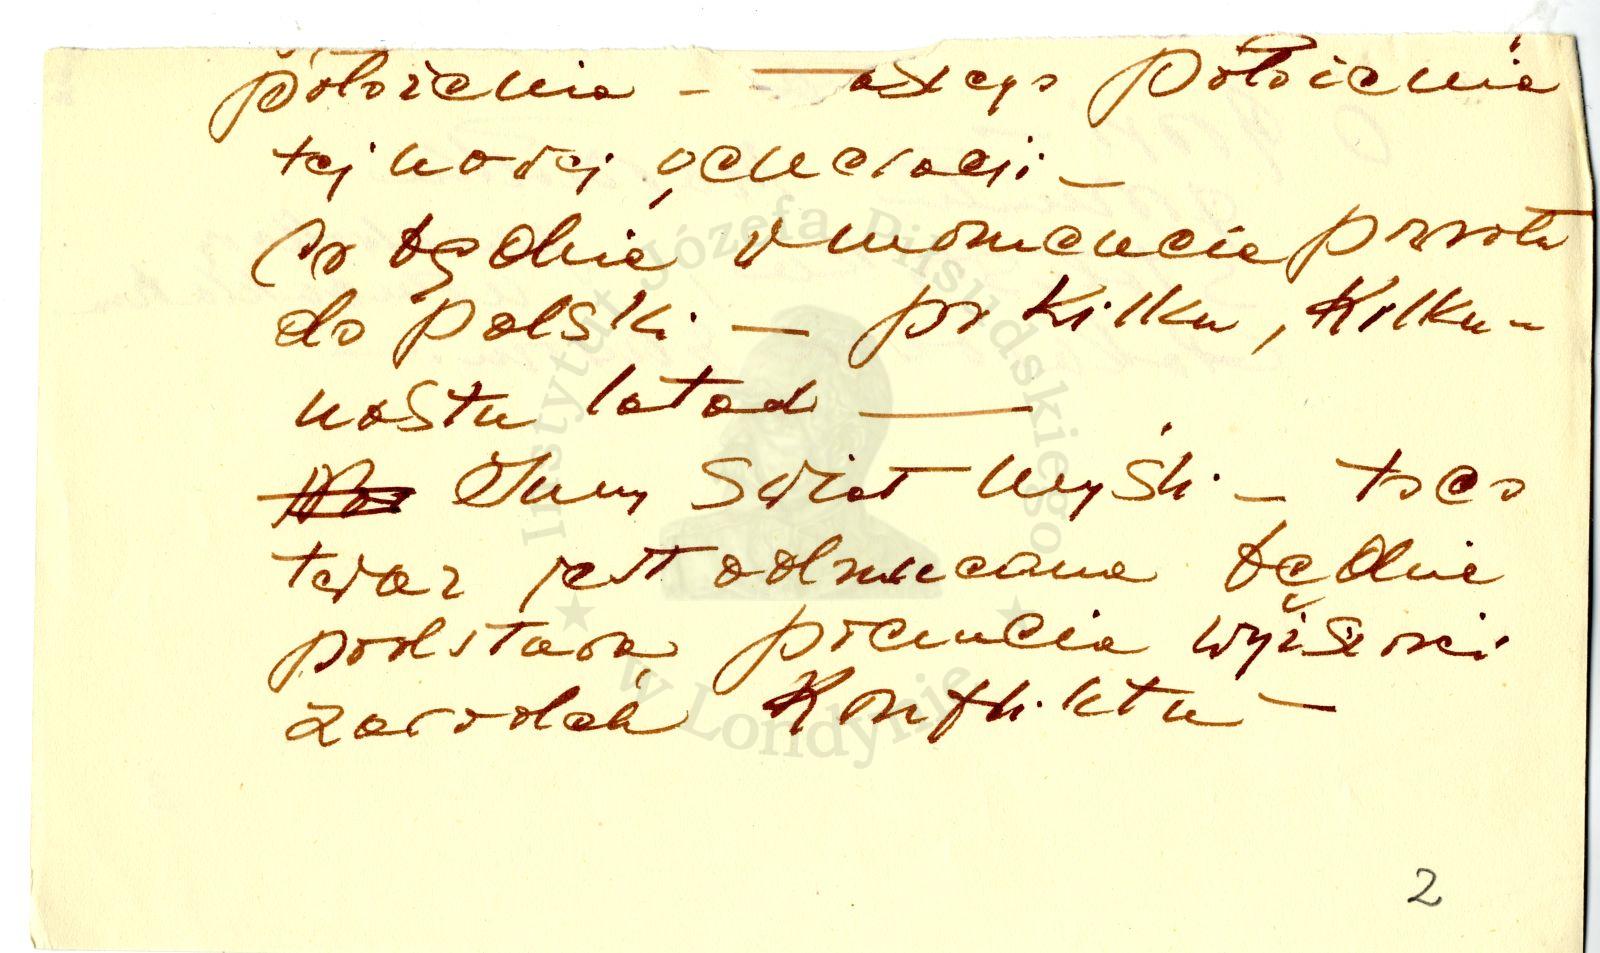 położenie — aszego położenie
tej nowej generacji —
Co będzie w momencie powrotu
do Polski — po kilku, kilku-
nastu latach —
Inny świat myśli — to co
teraz jest odrzucane będzie
podstawą poczucia wyższości
zarodek konfliktu —
2
Instytut Józefa Piłsudskiego
w Londynie